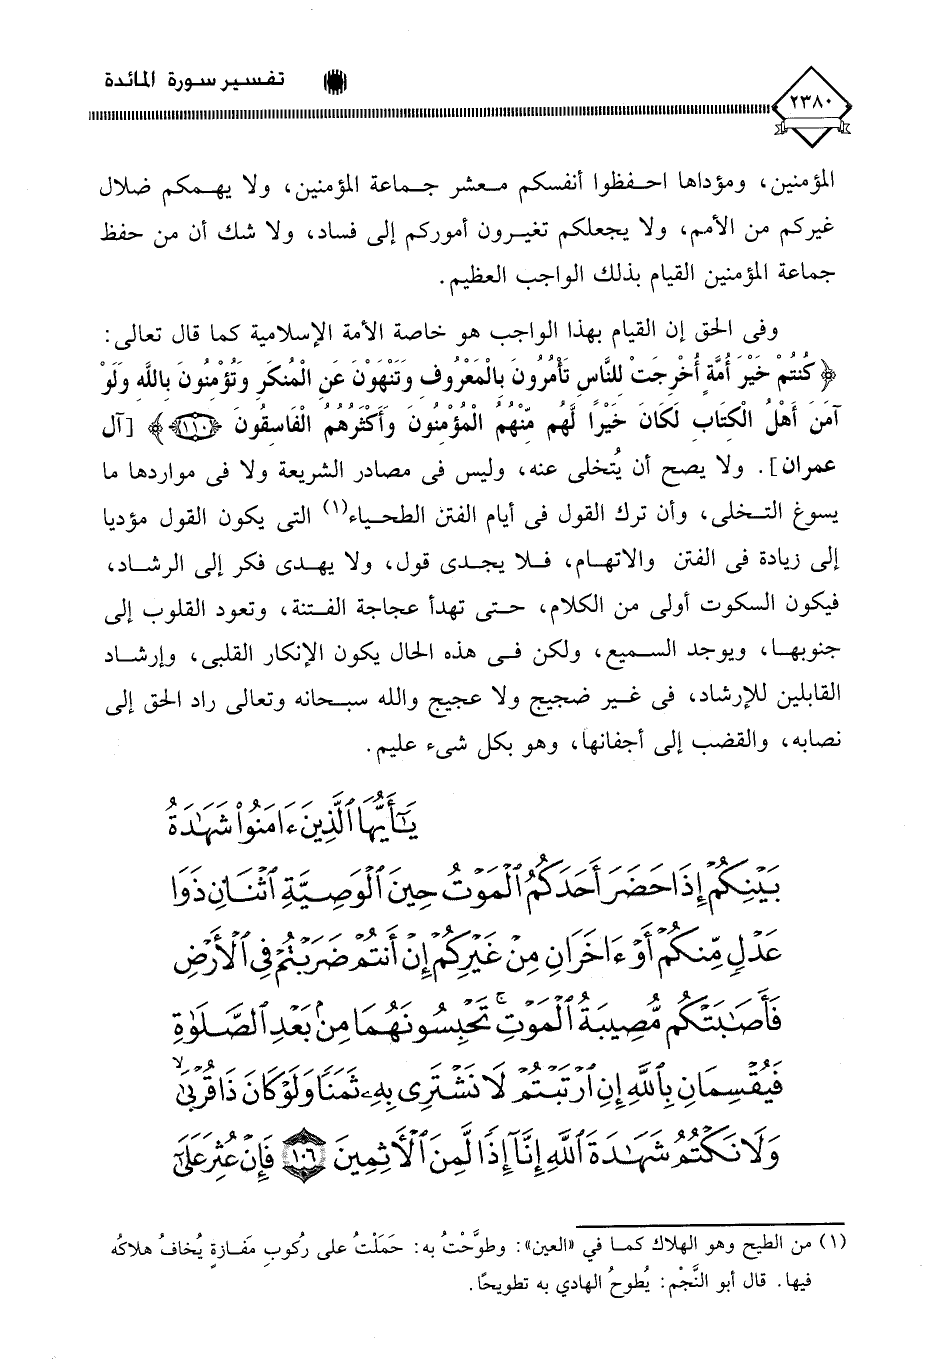 تفسير سورة المائدة
٢٣٨٠
المؤمنين، ومؤداها احفظوا أنفسكم معشر جماعة المؤمنين، ولا يهمكم ضلال
غيركم من الأمم، ولا يجعلكم تغيرون أموركم إلى فساد، ولا شك أن من حفظ
جماعة المؤمنين القيام بذلك الواجب العظيم.
وفى الحق إن القيام بهذا الواجب هو خاصة الأمة الإسلامية كما قال تعالى:
﴿كُنتُمْ خَيْرَ أُمَّةٍ أُخْرِجَتْ لِلنَّاسِ تَأْمُرُونَ بِالْمَعْرُوفِ وَتَنْهَوْنَ عَنِ الْمُنكَرِ وَتُؤْمِنُونَ بِاللَّهِ وَلَوْ
آمَنَ أَهْلُ الْكِتَابِ لَكَانَ خَيْرًا لَّهُم مِّنْهُمُ الْمُؤْمِنُونَ وَأَكْثَرُهُمُ الْفَاسِقُونَ ﴿١١٠﴾﴾ [آل
عمران]. ولا يصح أن يُتخلى عنه، وليس فى مصادر الشريعة ولا فى مواردها ما
يسوغ التخلى، وأن ترك القول فى أيام الفتن الطحياء(١) التى يكون القول مؤديا
إلى زيادة فى الفتن والاتهام، فلا يجدى قول، ولا يهدى فكر إلى الرشاد،
فيكون السكوت أولى من الكلام، حتى تهدأ عجاجة الفتنة، وتعود القلوب إلى
جنوبها، ويوجد السميع، ولكن فى هذه الحال يكون الإنكار القلبى، وإرشاد
القابلين للإرشاد، فى غير ضجيج ولا عجيج والله سبحانه وتعالى راد الحق إلى
نصابه، والقضب إلى أجفانها، وهو بكل شىء عليم.
يَٰٓأَيُّهَا ٱلَّذِينَ ءَامَنُوا۟ شَهَٰدَةُ
بَيْنِكُمْ إِذَا حَضَرَ أَحَدَكُمُ ٱلْمَوْتُ حِينَ ٱلْوَصِيَّةِ ٱثْنَانِ ذَوَا
عَدْلٍ مِّنكُمْ أَوْ ءَاخَرَانِ مِنْ غَيْرِكُمْ إِنْ أَنتُمْ ضَرَبْتُمْ فِى ٱلْأَرْضِ
فَأَصَٰبَتْكُم مُّصِيبَةُ ٱلْمَوْتِ ۚ تَحْبِسُونَهُمَا مِنۢ بَعْدِ ٱلصَّلَوٰةِ
فَيُقْسِمَانِ بِٱللَّهِ إِنِ ٱرْتَبْتُمْ لَا نَشْتَرِى بِهِۦ ثَمَنًا وَلَوْ كَانَ ذَا قُرْبَىٰ ۙ
وَلَا نَكْتُمُ شَهَٰدَةَ ٱللَّهِ إِنَّآ إِذًا لَّمِنَ ٱلْءَاثِمِينَ ١٠٦ فَإِنْ عُثِرَ عَلَىٰٓ
(١) من الطيح وهو الهلاك كما في «العين»: وطوَّحْتُ به: حَمَلْتُ على رُكوبِ مَفازةٍ يُخافُ هلاكُه
فيها. قال أبو النَّجْم: يُطوحُ الهادي به تطويحًا.